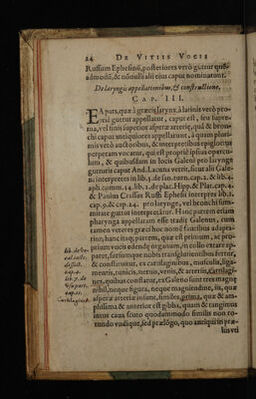 24 DE VITIIS VOCIS
Ruffum Ephesinũ, posteriores verò guttur quẽ-
admodũ, & nõnulli alii eius caput nominarunt.
De laryngis appellationibus, & constructione.
CAP. III.
EA pars, quæ à græcis larynx, à latinis verò pro-
priè guttur appellatur, caput est, seu supre-
ma, vel finis superior asperæ arteriæ, quã & bron-
chi caput antiquiores appellarunt, à quam pluri-
mis verò auctoribus, & interpretibus epiglottus
perperam vocatur, qui est propriè ipsius opercu-
lum, & quibusdam in locis Galeni pro larynge
gutturis caput And. Lacuna vertit, sicut alii Gale-
ni interpretes in lib. 4. de
aph. comm. 14. lib. 1. de plac. Hipp. & Plat. cap. 4.
& Paulus Crassus Ruffi Ephesii interpres lib. 1.
cap. 9. & cap. 24. pro larynge, vel bronchi sum-
mitate guttur interpretatur. Hanc partem etiam
pharynga appellatam esse tradit Galenus, cum
tamen veteres græci hoc nomẽ faucibus adapta-
rint, hanc itaq; partem, quæ est primum, ac pro-
prium vocis edendæ organum, in collo extare ap-
paret, seorsumque nobis transglutientibus fertur,
& constituitur, ex cartilaginibus, musculis, liga-
mentis, tunicis, neruis, venis, & arteriis, cartilagi-
nes, quibus constatur, ex Galeno sunt tres magnę
nihil, neque figura, neque magnitudine, iis, quæ
asperæ arteriæ insunt, similes, prima, quæ & am-
plissima & anterior est gibba, quanta & tangentibus
intus caua scuto quodammodo similis non ro-
tundo vndique, sed prælõgo, quo antiquitùs præ-